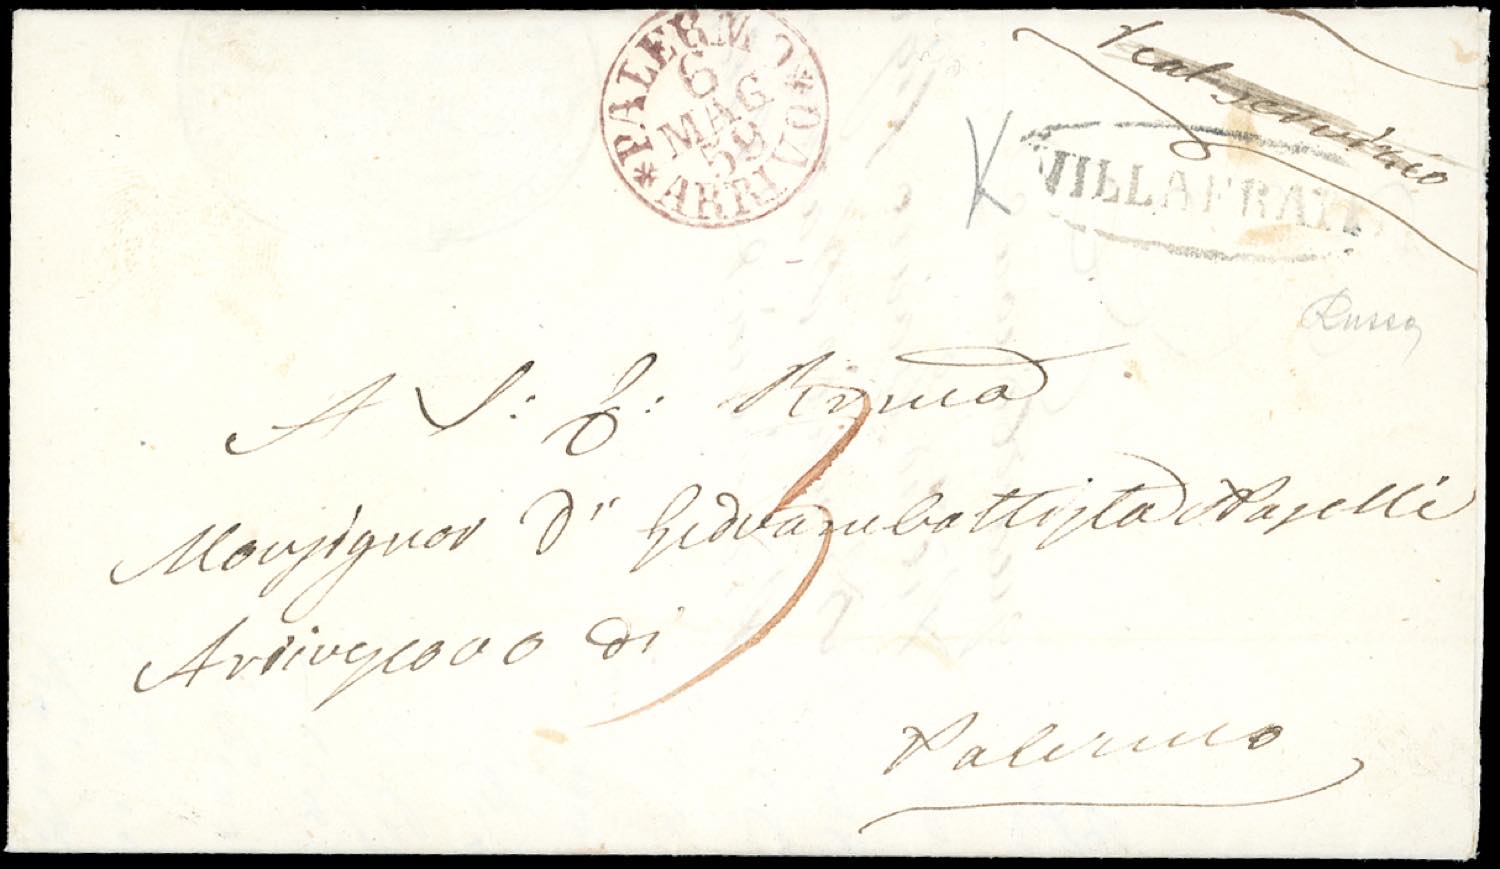 PALERMO * OVA
6
MAG
59
* ARRI
Real servizio
K
VILLAFRATI
Russo
A S: E: R.ma
3
Monsignor Dn Giovambattista Naselli
Arcivescovo di
Palermo